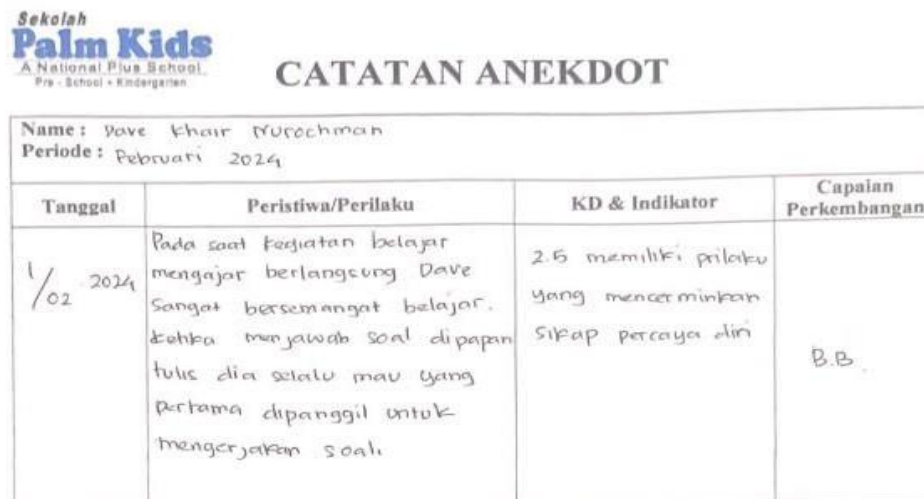 Sekolah
Palm Kids
A National Plus School
Pre - School + Kindergarten
CATATAN ANEKDOT
Name : Dave Khair Nurochman
Periode : Pebruari 2024
Tanggal
Peristiwa/Perilaku
KD & Indikator
Capaian
Perkembangan
1/02 2024
Pada saat kegiatan belajar
mengajar berlangsung Dave
sangat bersemangat belajar.
ketika menjawab soal dipapan
tulis dia selalu mau yang
pertama dipanggil untuk
mengerjakan soal.
2.5 memiliki prilaku
yang mencerminkan
sikap percaya diri
B.B.